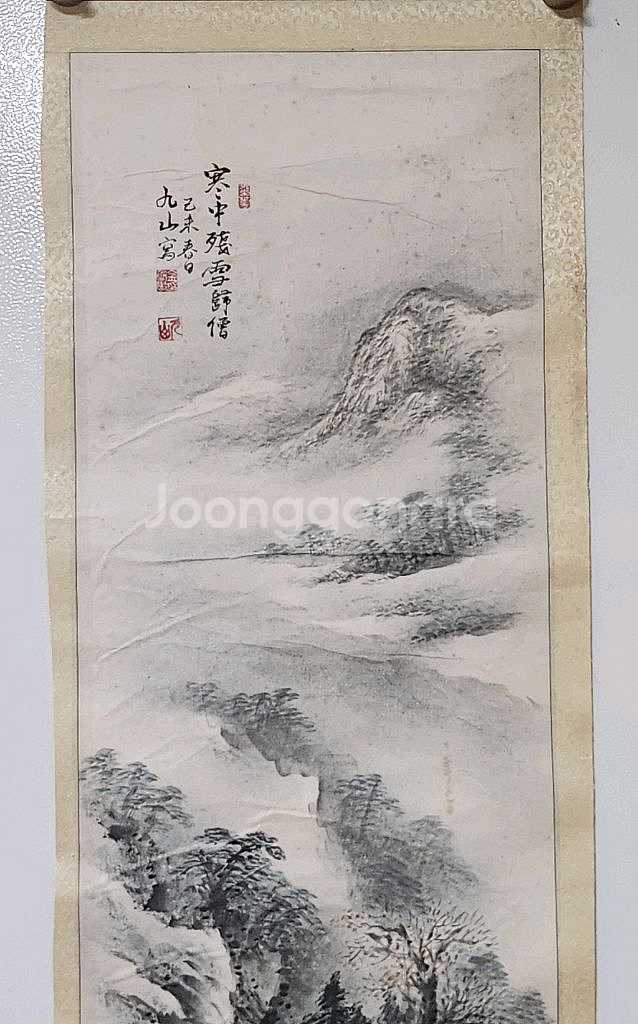 寒中殘雪歸僧
己未春日
九山寫
Joonggonara